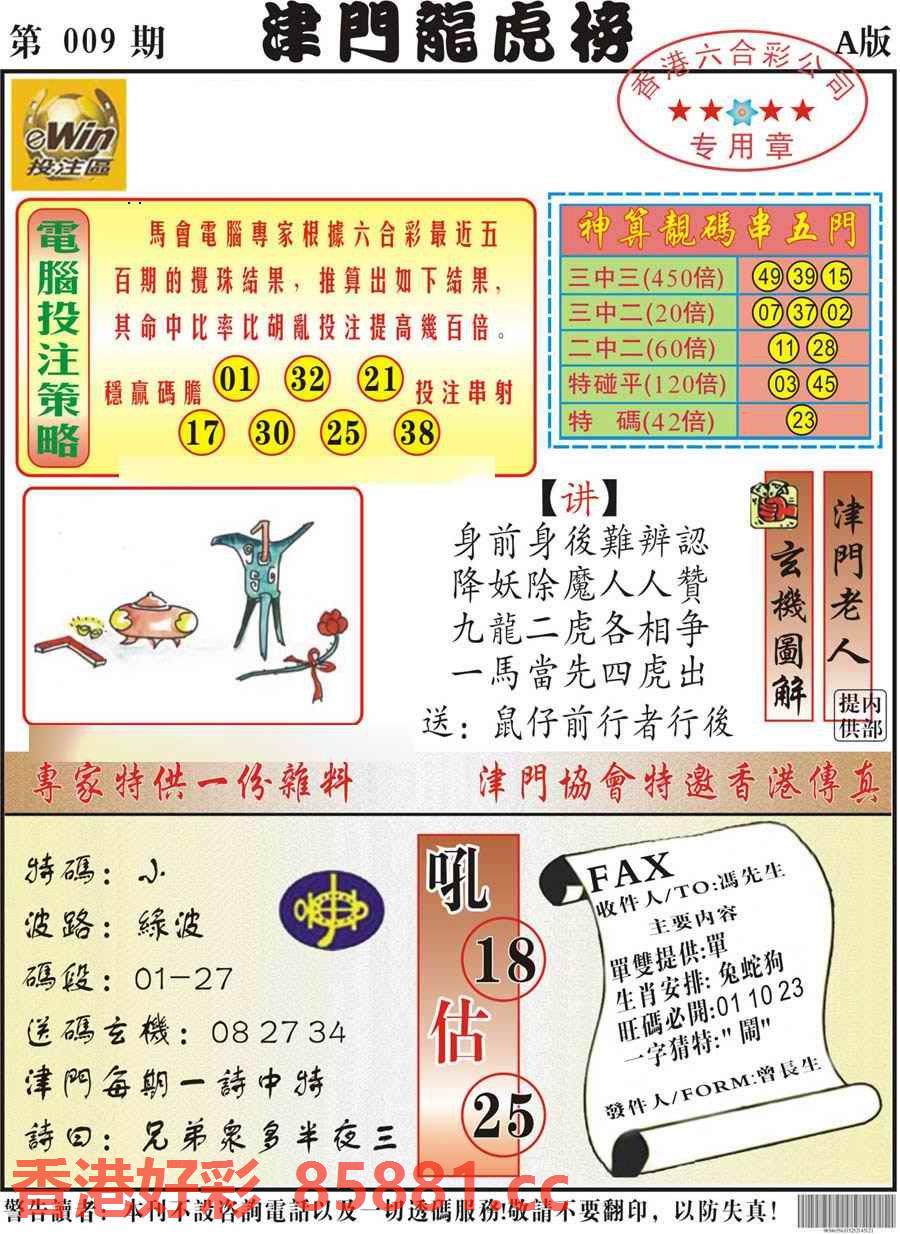 第 009 期
津門龍虎榜
A版
香港六合彩公司
专用章
eWin
投注區
電腦投注策略
馬會電腦專家根據六合彩最近五
百期的攪珠結果，推算出如下結果，
其命中比率比胡亂投注提高幾百倍。
穩贏碼膽 01 32 21 投注串射
17 30 25 38
神算靚碼串五門
三中三(450倍) 49 39 15
三中二(20倍) 07 37 02
二中二(60倍) 11 28
特碰平(120倍) 03 45
特 碼(42倍) 23
1
【讲】
身前身後難辨認
降妖除魔人人贊
九龍二虎各相争
一馬當先四虎出
送：鼠仔前行者行後
玄機圖解
津門老人
内部提供
專家特供一份雜料
津門協會特邀香港傳真
特碼：小
波路：綠波
碼段：01-27
送碼玄機：08 27 34
津門每期一詩中特
詩曰：兄弟眾多半夜三
吼
18
估
25
FAX
收件人/TO:馮先生
主要内容
單雙提供:單
生肖安排: 兔蛇狗
旺碼必開:01 10 23
一字猜特:"鬧"
發件人/FORM:曾長生
香港好彩 85881.cc
警告讀者：本刊不設咨詢電話以及一切透碼服務!敬請不要翻印，以防失真!